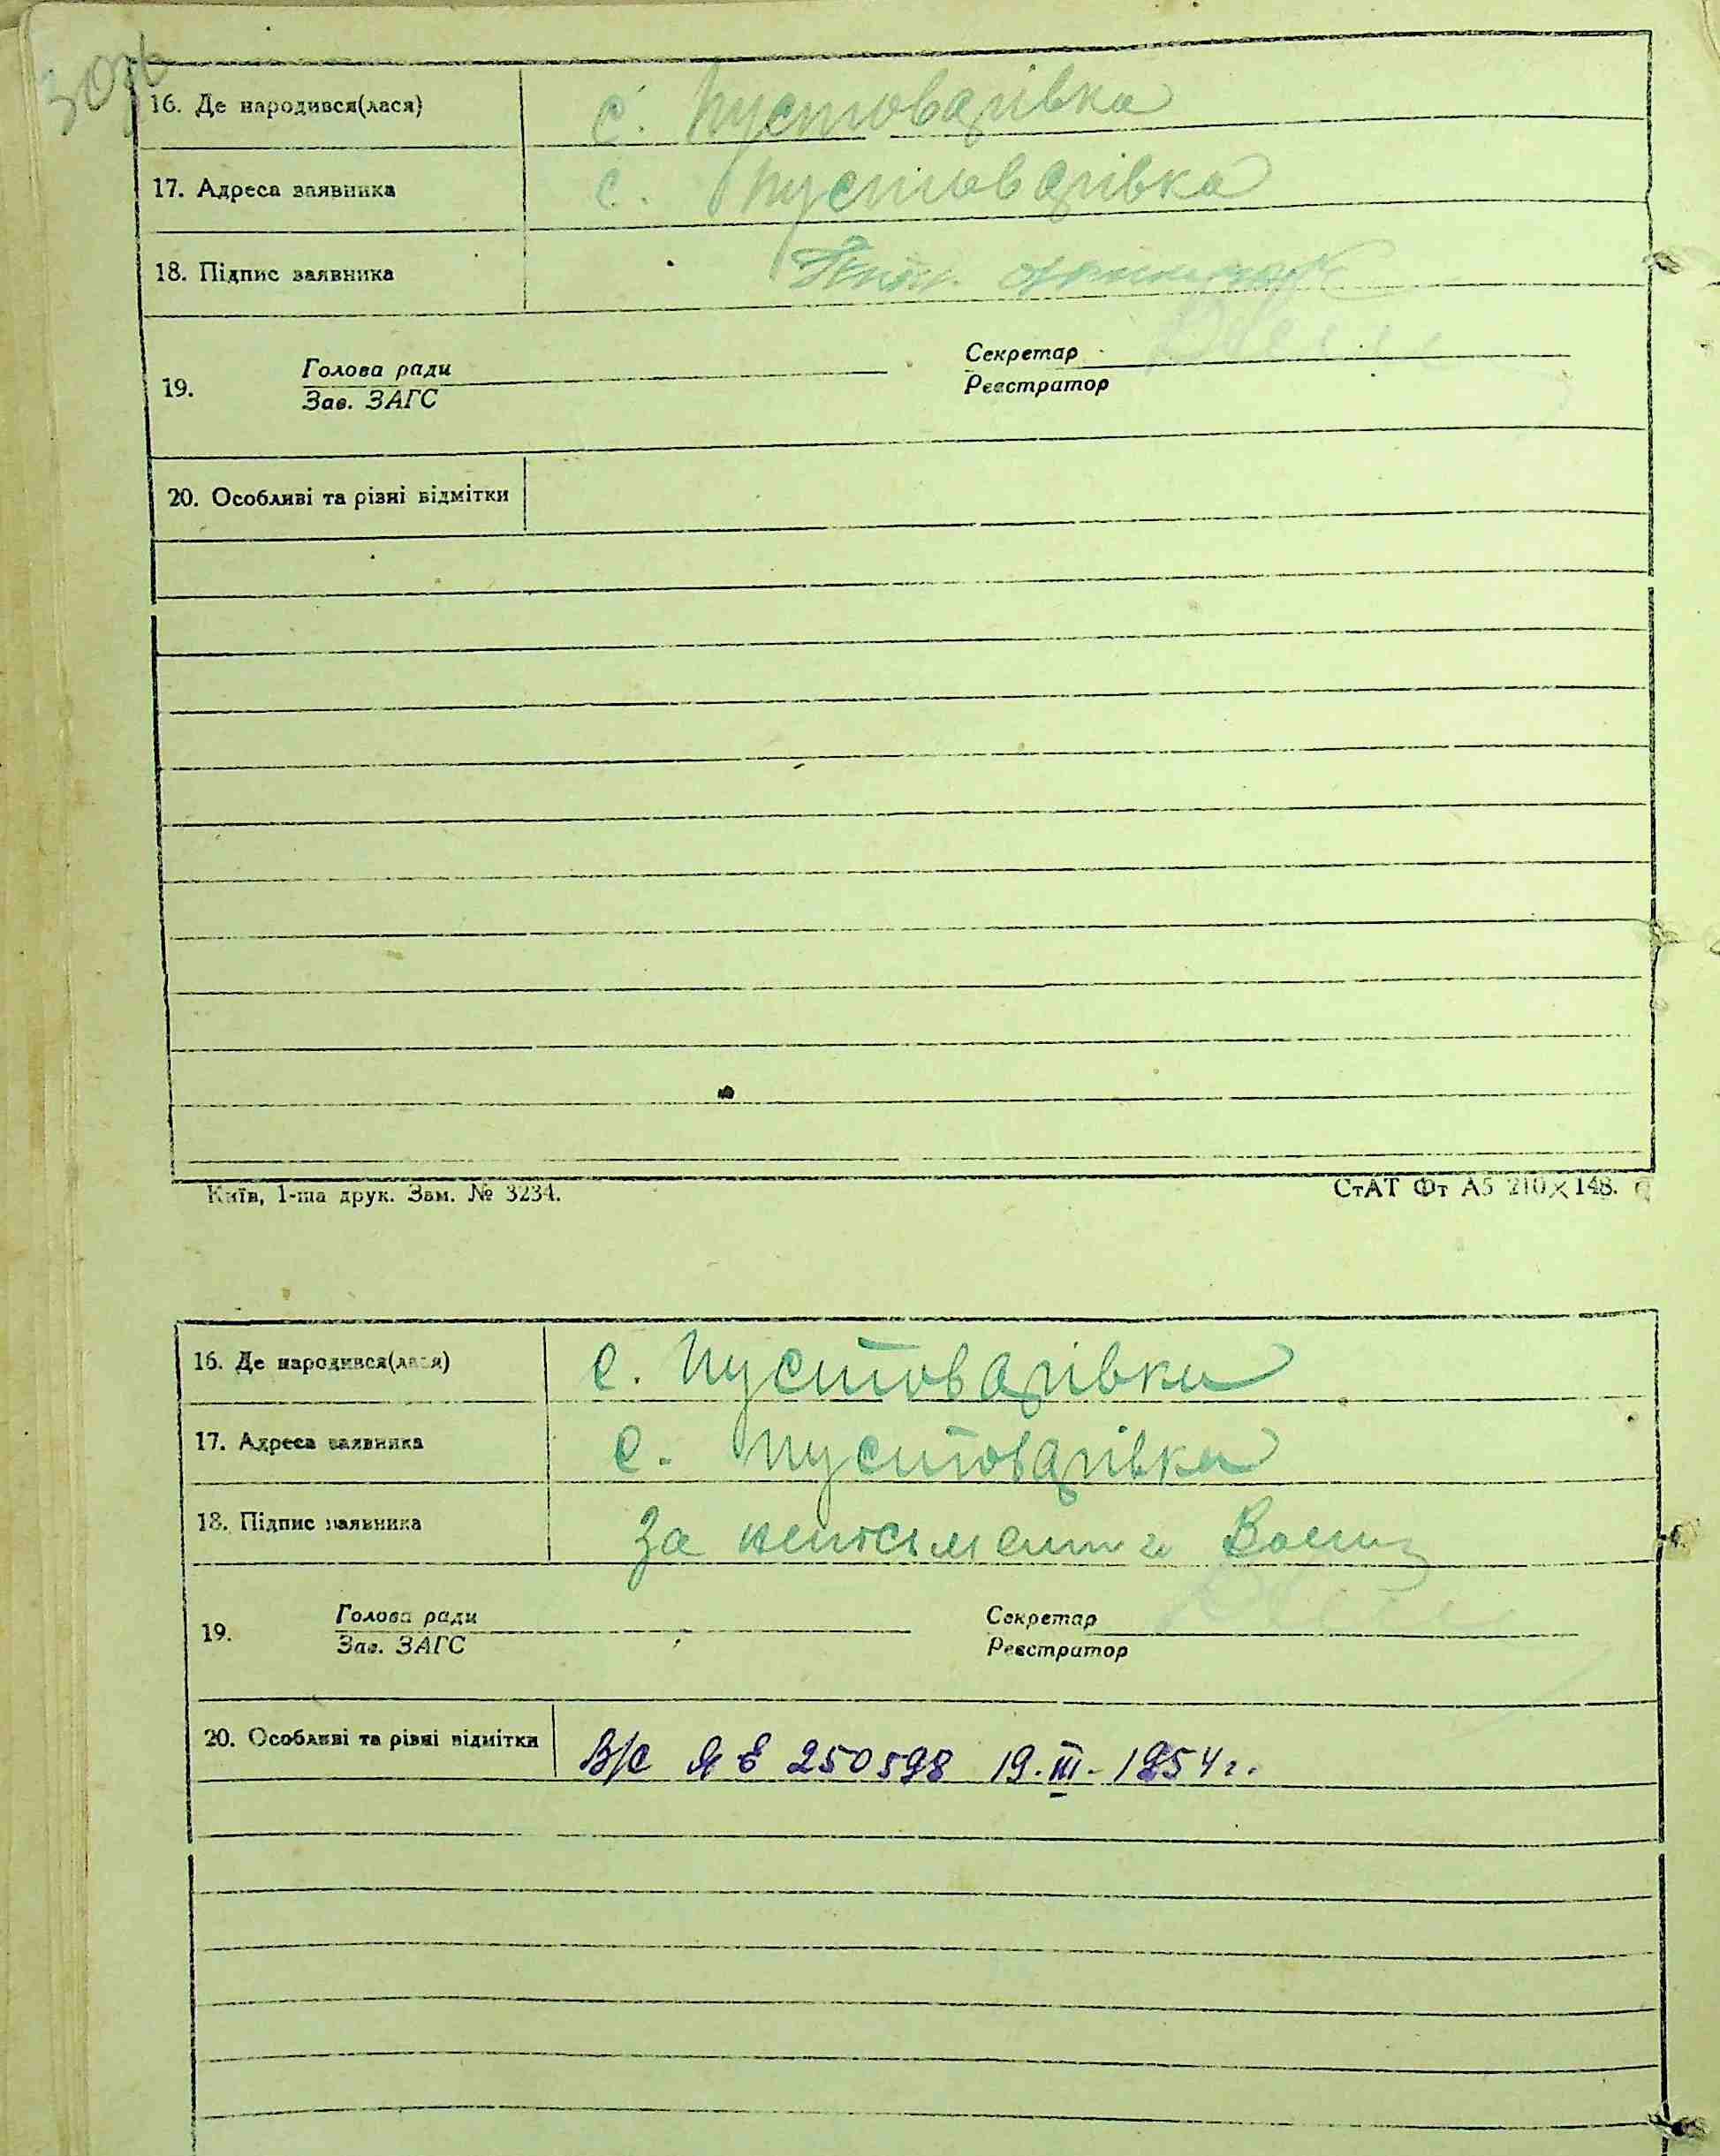 30
16. Де народився(лася) с. Пустоварівка
17. Адреса заявника с. Пустоварівка
18. Підпис заявника
Голова ради Секретар
19.
Зав. ЗАГС Реєстратор
20. Особливі та різні відмітки
Київ, 1-ша друк. Зам. № 3234. СтАТ Фт А5 210×148.
16. Де народився(лася) с. Пустоварівка
17. Адреса заявника с. Пустоварівка
18. Підпис заявника За
Голова ради Секретар
19.
Зав. ЗАГС Реєстратор
20. Особливі та різні відмітки В/с 250598 19.III-1954 г.